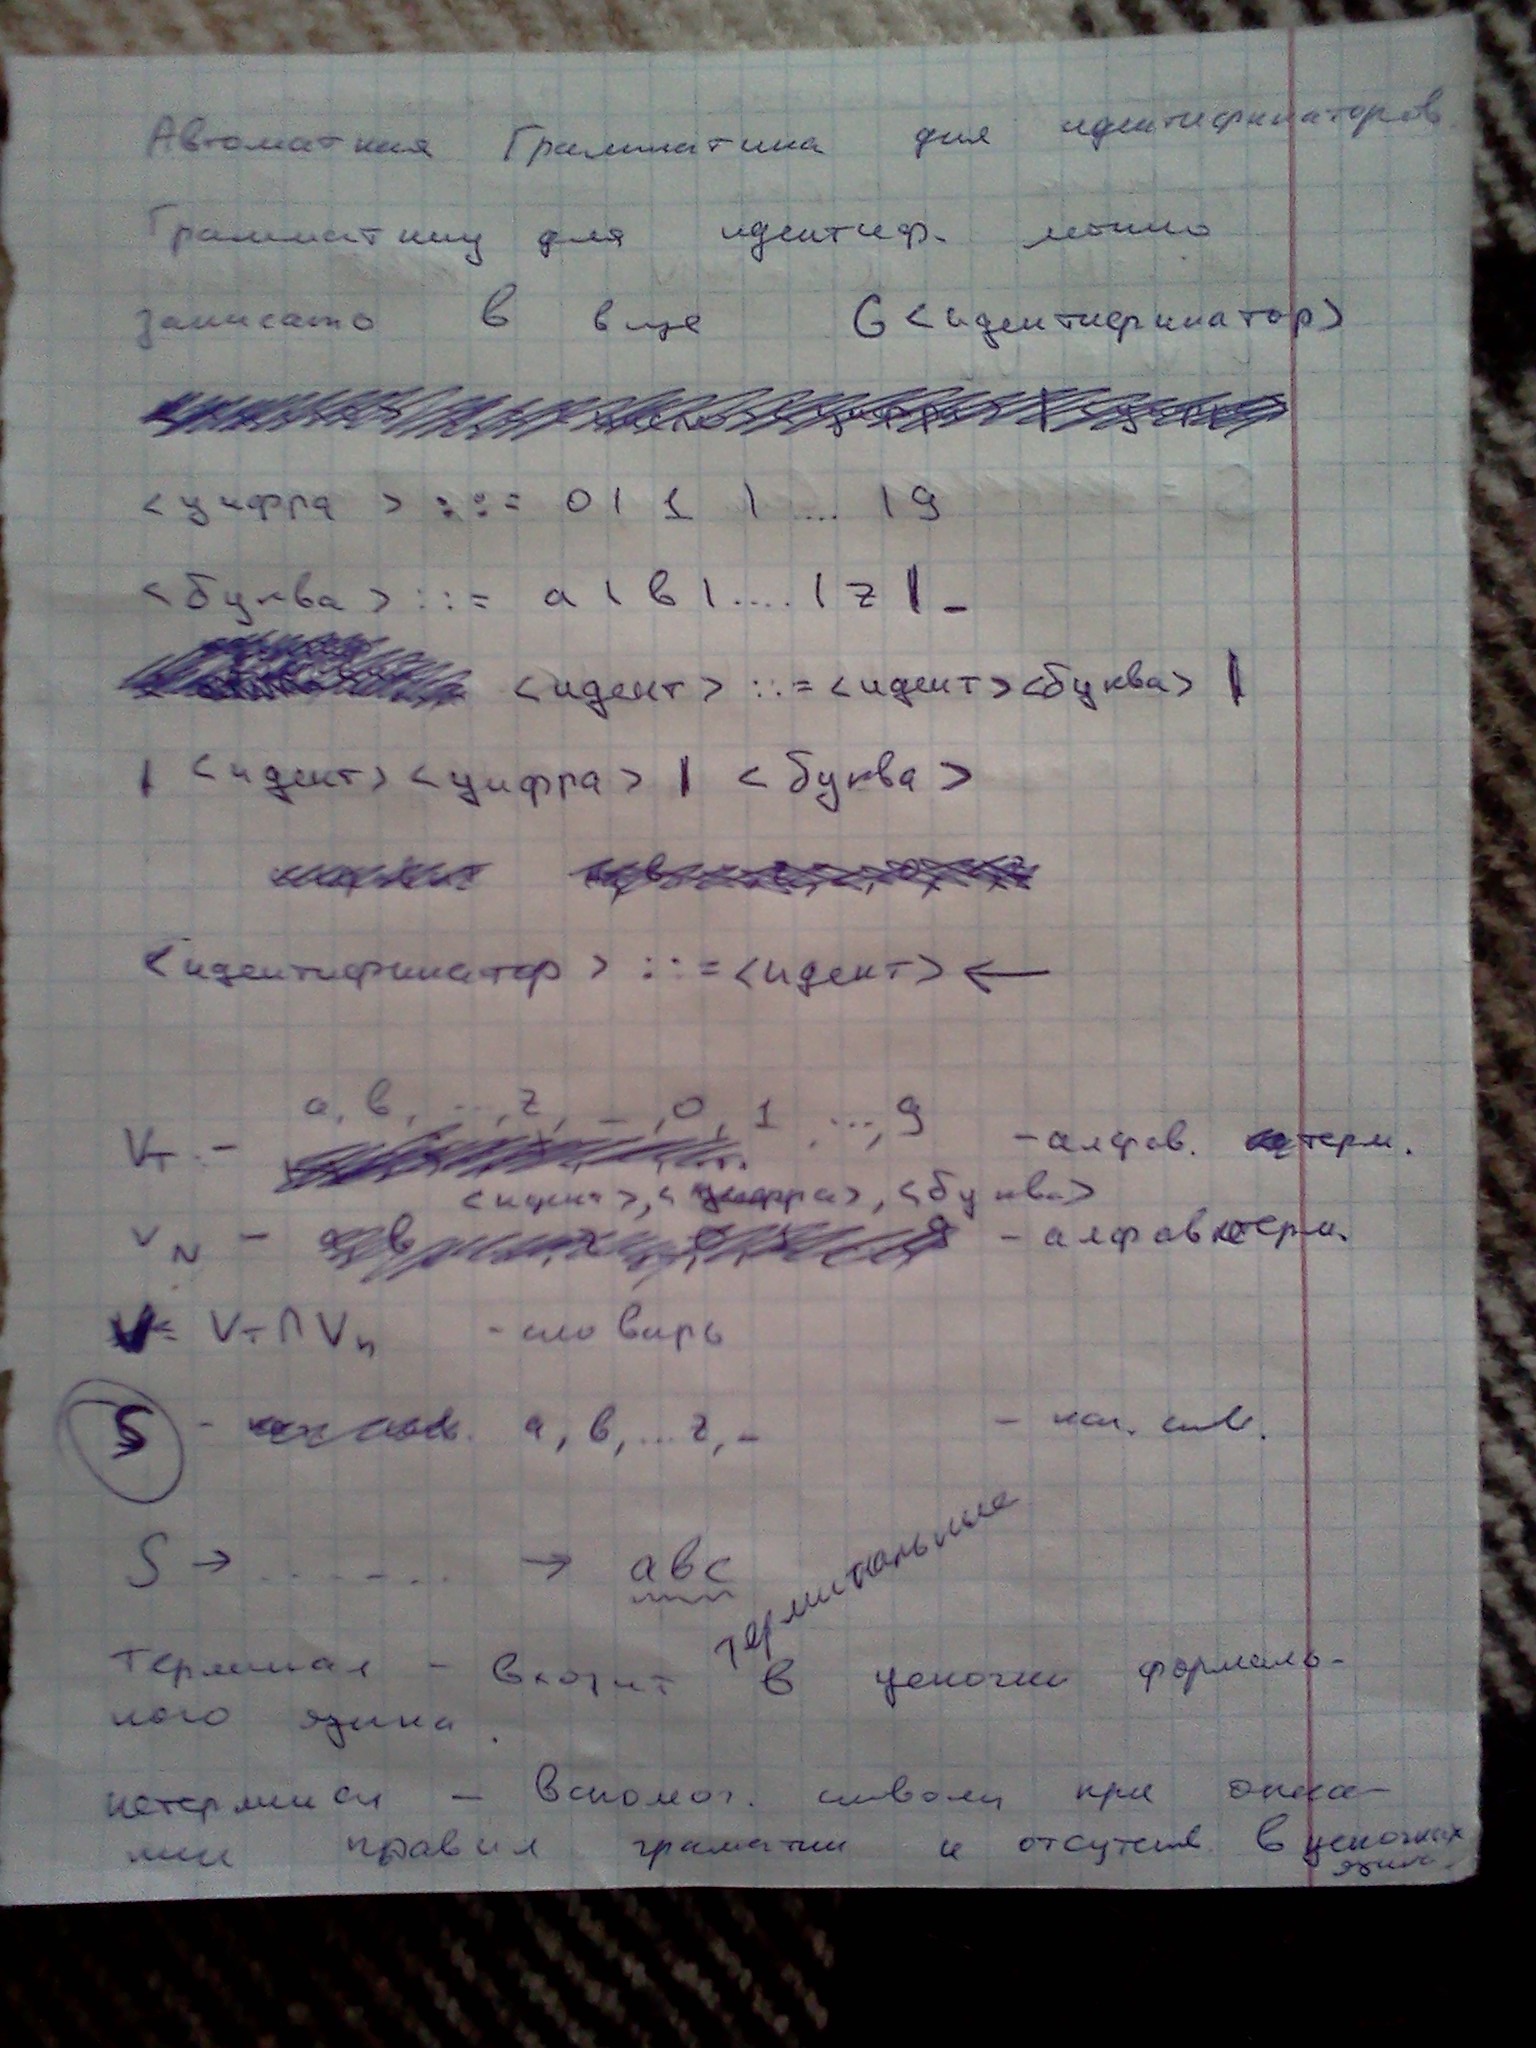 Автоматная Грамматика для идентификаторов
Грамматику для идентиф. можно
записать в виде G<идентификатор>
<цифра> ::= 0 | 1 | ... | 9
<буква> ::= a | b | .... | z | _
<идент> ::= <идент><буква> |
| <идент><цифра> | <буква>
<идентификатор> ::= <идент> ←
a, b, ..., z, _, 0, 1 ..., 9
V_T - - алфав. терм.
<идент>, <цифра>, <буква>
V_N - - алфав нетерм.
V = V_T ∩ V_n - словарь
S - a, b, ... z, _ - нач. симв.
S → ....... → abc
терминальные
терминал - входит в цепочки формаль-
ного языка.
нетерминал - вспомог. символы при описа-
нии правил граматики и отсутств. в цепочках
языка.